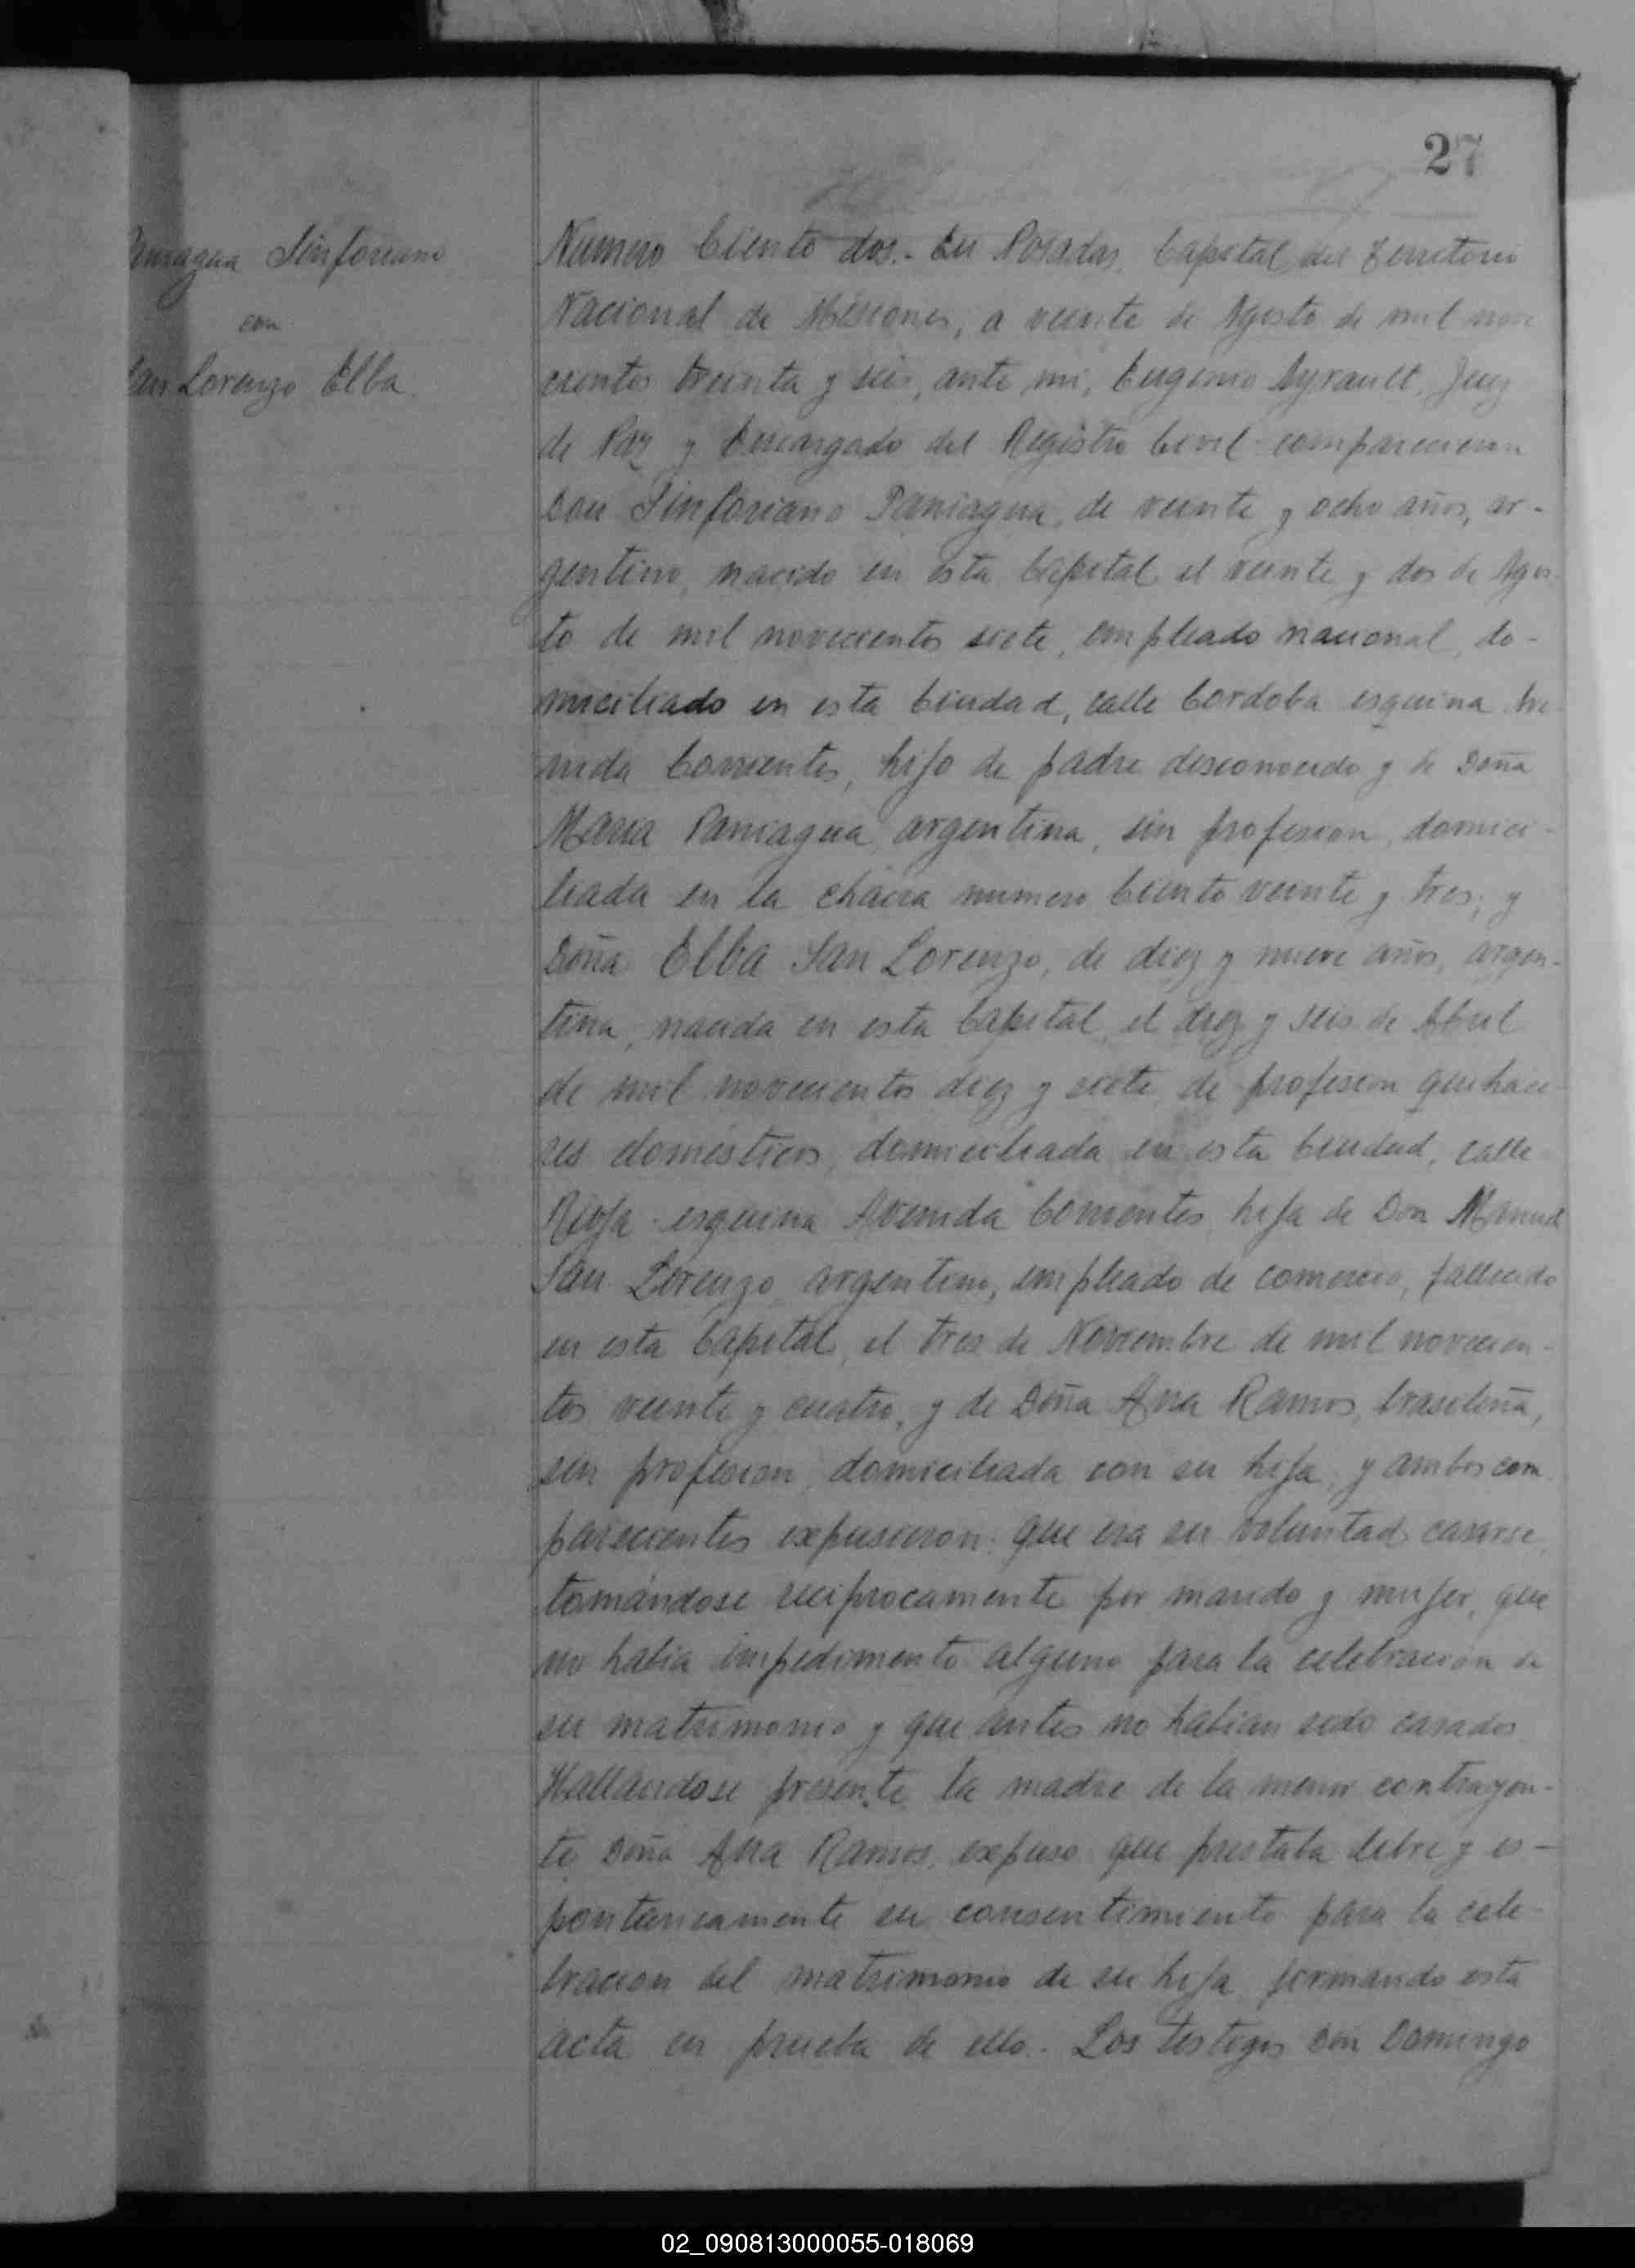 27
Paniagua Sinforiano
con
San Lorenzo Elba
Número Ciento dos.- En Posadas, Capital del Territorio
Nacional de Misiones, a veinte de Agosto de mil nove
cientos treinta y seis, ante mi, Eugenio Ayrault, Juez
de Paz y Encargado del Registro Civil comparecieron
Don Sinforiano Paniagua, de veinte y ocho años, ar-
gentino, nacido en esta Capital el veinte y dos de Agos-
to de mil novecientos siete, empleado nacional, do-
miciliado en esta Ciudad, calle Cordoba esquina Ave
nida Corrientes, hijo de padre desconocido y de Doña
Maria Paniagua, argentina, sin profesion, domici-
liada en la chacra numero Ciento veinte y tres; y
Doña Elba San Lorenzo, de diez y nueve años, argen-
tina, nacida en esta Capital, el diez y seis de Abril
de mil novecientos diez y siete, de profesion quehace
res domésticos, domiciliada en esta Ciudad, calle
Rioja esquina Avenida Corrientes, hija de Don Manuel
San Lorenzo, argentino, empleado de comercio, fallecido
en esta Capital, el tres de Noviembre de mil novecien-
tos veinte y cuatro, y de Doña Ana Ramos, brasileña,
sin profesion, domiciliada con su hija, y ambos com
parecientes expusieron: que era su voluntad casarse,
tomándose reciprocamente por marido y mujer, que
no habia impedimento alguno para la celebracion de
su matrimonio y que antes no habian sido casados
Hallándose presente la madre de la menor contrayen-
te Doña Ana Ramos, expuso que prestaba libre y es-
pontaneamente su consentimiento para la cele-
bracion del matrimonio de su hija, firmando esta
acta en prueba de ello. Los testigos Don Domingo
02_090813000055-018069